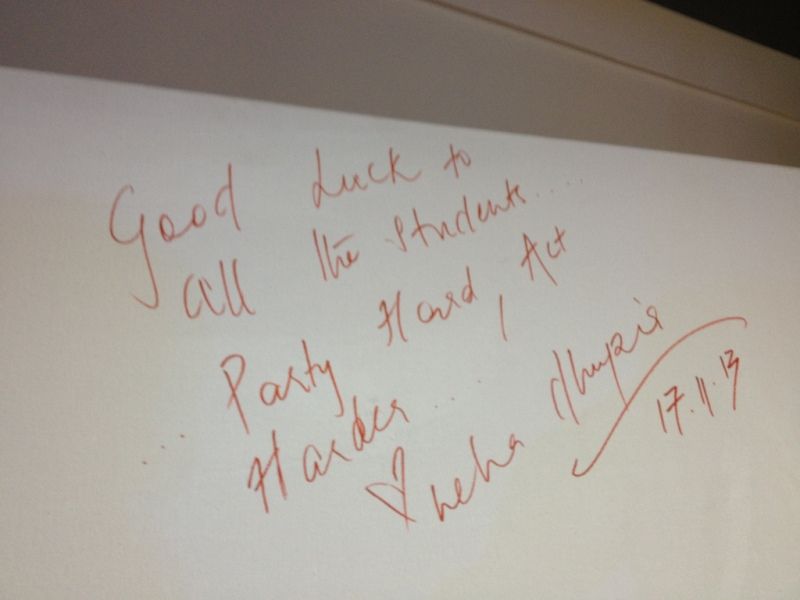 Good Luck to
all the students.....
... Party Hard, Act
Harder....
neha dhupia
17.11.13